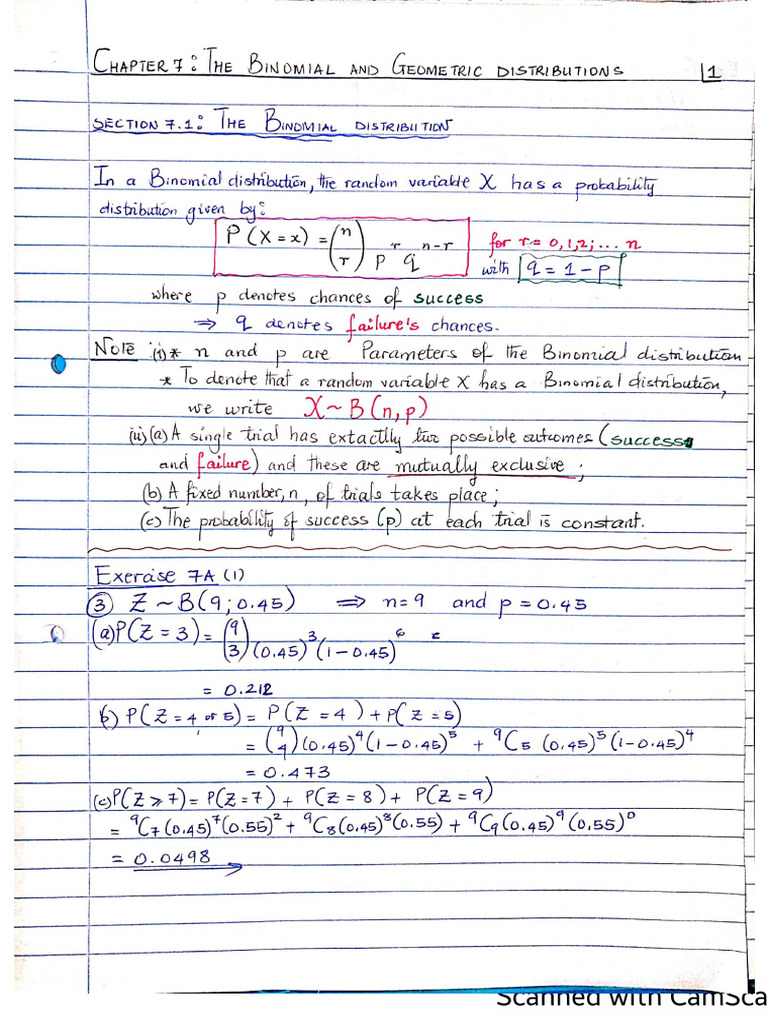 CHAPTER 7: THE BINOMIAL AND GEOMETRIC DISTRIBUTIONS 1
SECTION 7.1: THE BINOMIAL DISTRIBUTION
In a Binomial distribution, the random variable X has a probability
distribution given by:
P(X = x) = (n r) p^r q^(n-r) for r = 0, 1, 2; ... n
with q = 1 - p
where p denotes chances of success
⇒ q denotes failure's chances.
Note (i)* n and p are Parameters of the Binomial distribution
* To denote that a random variable X has a Binomial distribution,
we write X ~ B(n, p)
(ii) (a) A single trial has extactlly two possible outcomes (success
and failure) and these are mutually exclusive;
(b) A fixed number, n, of trials takes place;
(c) The probability of success (p) at each trial is constant.
Exercise 7A (1)
③ Z ~ B(9; 0.45) ⇒ n = 9 and p = 0.45
(a) P(Z = 3) = (9 3) (0.45)^3 (1 - 0.45)^6
= 0.212
b) P(Z = 4 or 5) = P(Z = 4) + P(Z = 5)
= (9 4) (0.45)^4 (1 - 0.45)^5 + ⁹C₅ (0.45)^5 (1 - 0.45)^4
= 0.473
(c) P(Z ⩾ 7) = P(Z = 7) + P(Z = 8) + P(Z = 9)
= ⁹C₇ (0.45)^7 (0.55)^2 + ⁹C₈ (0.45)^8 (0.55) + ⁹C₉ (0.45)^9 (0.55)^0
= 0.0498
Scanned with CamSca